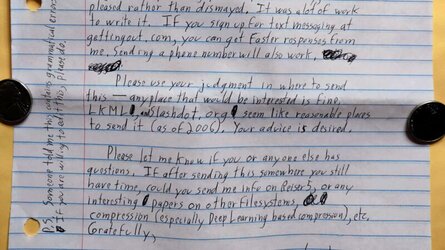 pleased rather than dismayed. It was a lot of work
to write it. If you sign up for text messaging at
gettingout.com, you can get faster responses from
me. Sending a phone number will also work.
Please use your judgment in where to send
this — anyplace that would be interested is fine.
LKML, Slashdot.org seem like reasonable places
to send it (as of 2006). Your advice is desired.
Please let me know if you or anyone else has
questions. If after sending this somewhere you still
have time, could you send me info on Reiser5, or any
interesting papers on other filesystems,
compression (especially Deep Learning based compression), etc.
Gratefully,
P.S. Someone told me this contains grammatical errors.
If you are willing to edit this, please do.